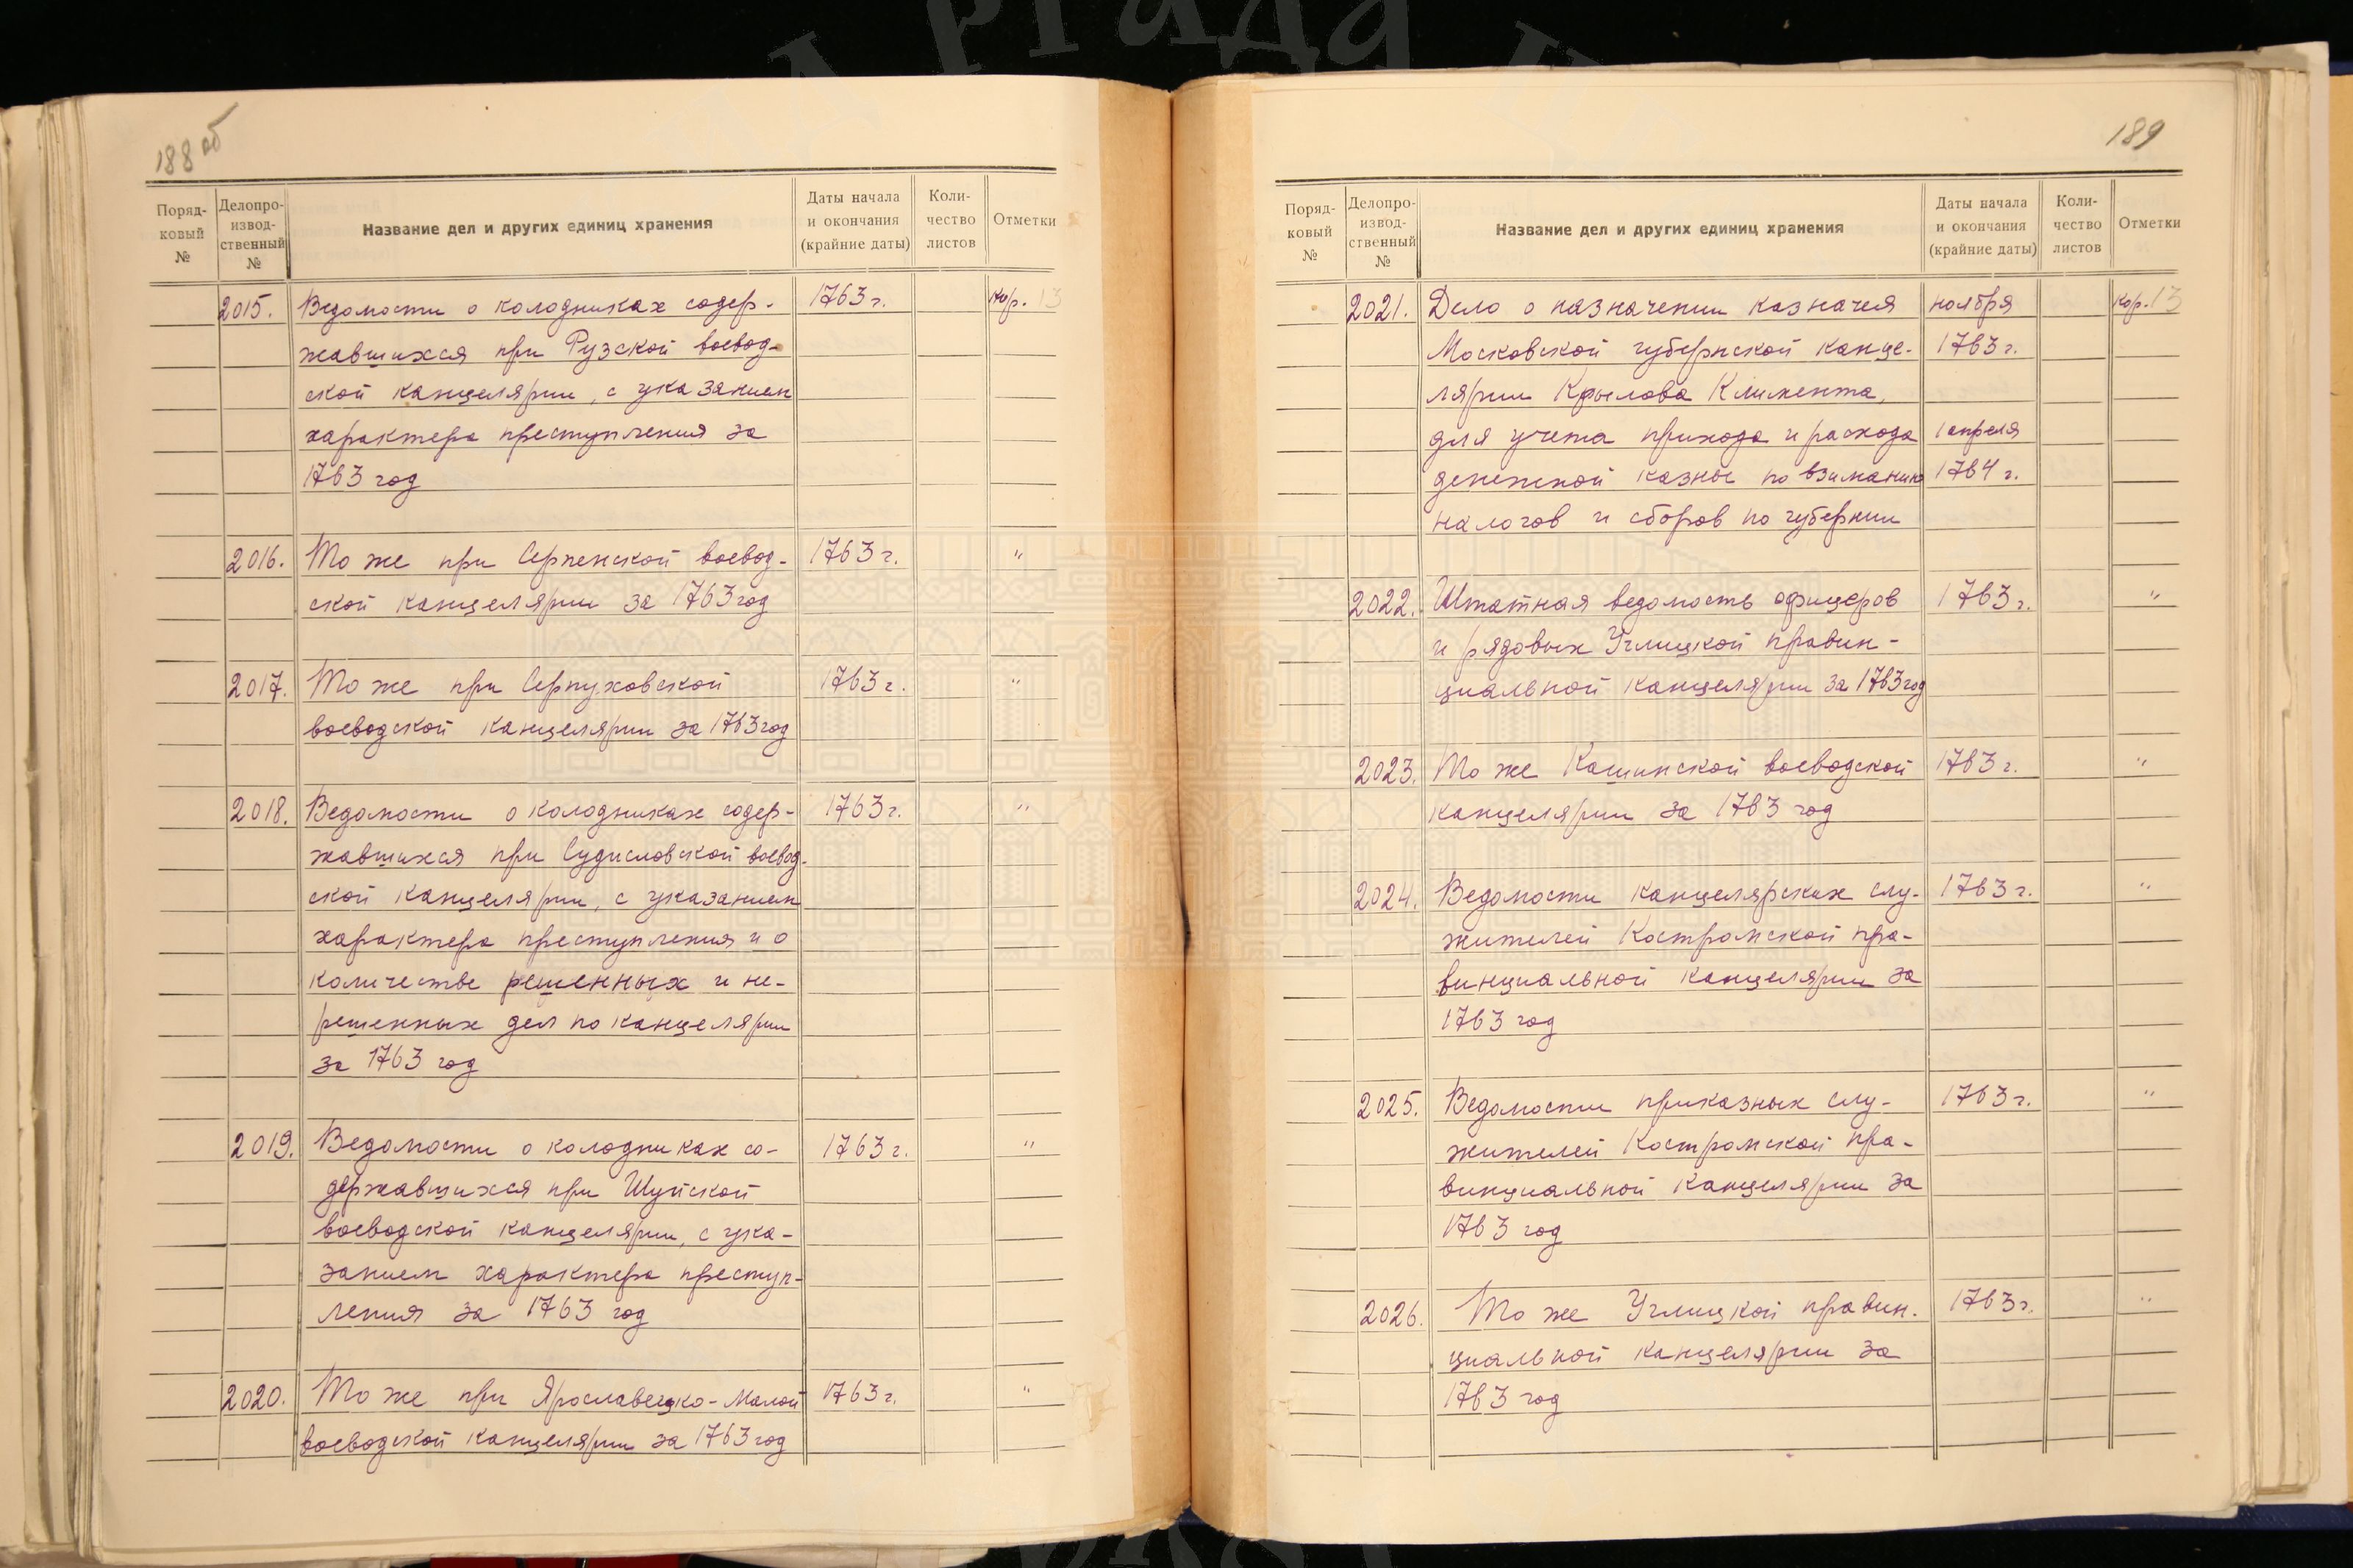 188 об
Поряд-
ковый
№
Делопро-
извод-
ственный
№
Название дел и других единиц хранения
Даты начала
и окончания
(крайние даты)
Коли-
чество
листов
Отметки
2015. Ведомости о колодниках содер- 1763 г. кор. 13
жавшихся при Рузской воевод-
ской канцелярии, с указанием
характера преступления за
1763 год
2016. То же при Серпенской воевод- 1763 г. "
ской канцелярии за 1763 год
2017. То же при Серпуховской 1763 г. "
воеводской канцелярии за 1763 год
2018. Ведомости о колодниках содер- 1763 г. "
жавшихся при Судисловской воевод-
ской канцелярии, с указанием
характера преступления и о
количестве решенных и не-
решенных дел по канцелярии
за 1763 год
2019. Ведомости о колодниках со- 1763 г. "
державшихся при Шуйской
воеводской канцелярии, с ука-
занием характера преступ-
ления за 1763 год
2020. То же при Ярославецко-Малой 1763 г. "
воеводской канцелярии за 1763 год
189
Поряд-
ковый
№
Делопро-
извод-
ственный
№
Название дел и других единиц хранения
Даты начала
и окончания
(крайние даты)
Коли-
чество
листов
Отметки
2021. Дело о назначении казначея ноября кор. 13
Московской губернской канце- 1763 г.
лярии Крылова Климента,
для учета прихода и расхода 1 апреля
денежной казны по взиманию 1764 г.
налогов и сборов по губернии
2022. Штатная ведомость офицеров 1763 г. "
и рядовых Углицкой правин-
циальной канцелярии за 1763 год
2023. То же Кашинской воеводской 1763 г. "
канцелярии за 1763 год
2024. Ведомости канцелярских слу- 1763 г. "
жителей Костромской пра-
винциальной канцелярии за
1763 год
2025. Ведомости приказных слу- 1763 г. "
жителей Костромской пра-
винциальной канцелярии за
1763 год
2026. То же Углицкой правин- 1763 г. "
циальной канцелярии за
1763 год